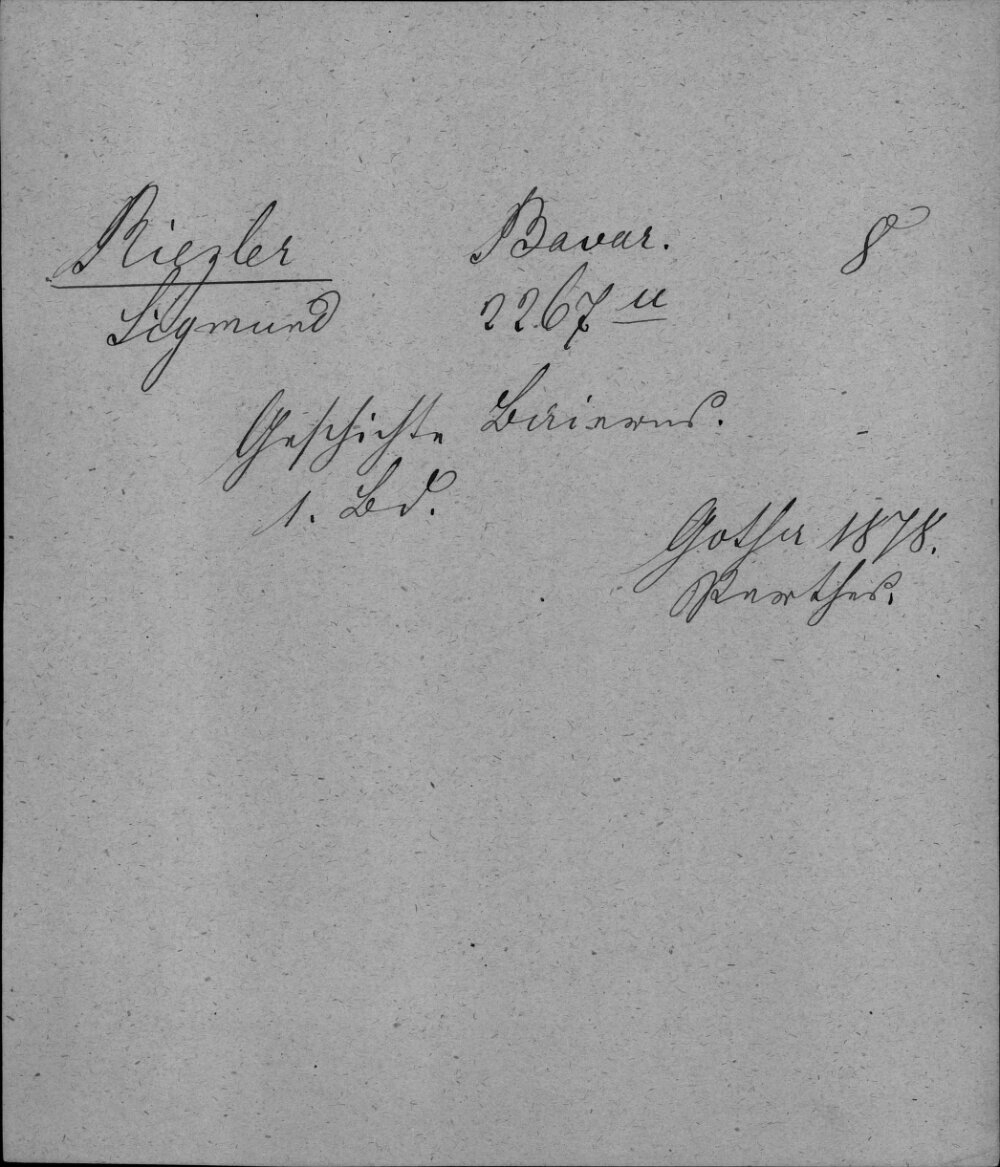 Riezler Bavar. 8
Sigmund 2267 u
Geschichte Baierns.
1. Bd.
Gotha 1878.
Perthes.